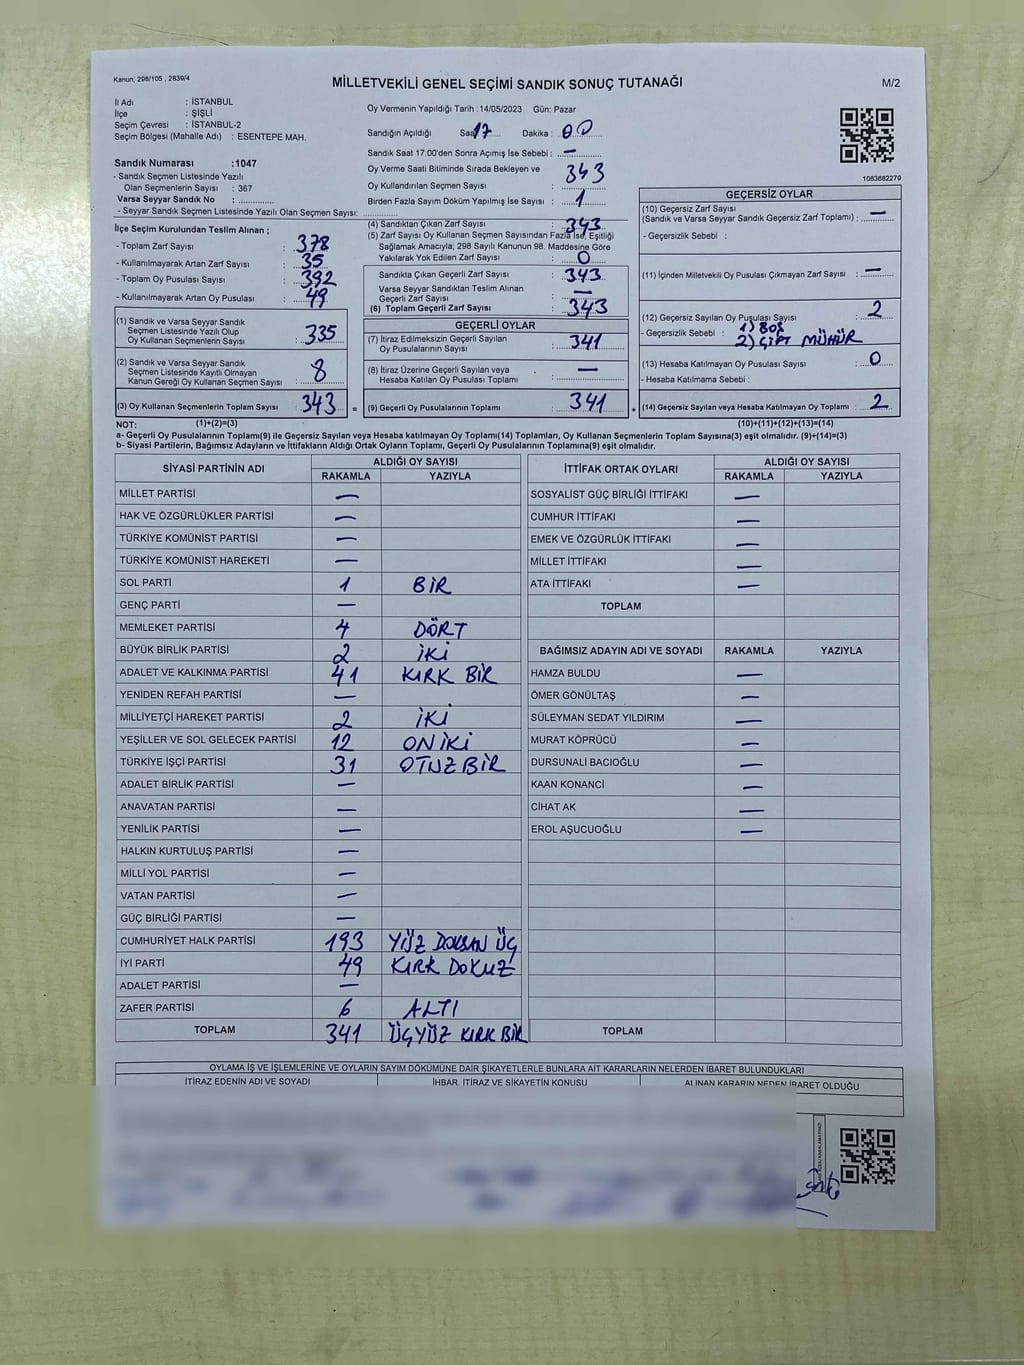 Kanun; 298/105 , 2839/4
MİLLETVEKİLİ GENEL SEÇİMİ SANDIK SONUÇ TUTANAĞI
M/2
İl Adı : İSTANBUL
İlçe : ŞİŞLİ
Seçim Çevresi : İSTANBUL-2
Seçim Bölgesi (Mahalle Adı) : ESENTEPE MAH.
Sandık Numarası :1047
- Sandık Seçmen Listesinde Yazılı
Olan Seçmenlerin Sayısı : 367
Varsa Seyyar Sandık No : ..............
- Seyyar Sandık Seçmen Listesinde Yazılı Olan Seçmen Sayısı: ..............
Oy Vermenin Yapıldığı Tarih :14/05/2023 Gün: Pazar
Sandığın Açıldığı Saat 17 Dakika : 00
Sandık Saat 17:00'den Sonra Açımış İse Sebebi : —
Oy Verme Saati Bitiminde Sırada Bekleyen ve
Oy Kullandırılan Seçmen Sayısı : 343
Birden Fazla Sayım Döküm Yapılmış İse Sayısı : 1
1083682279
İlçe Seçim Kurulundan Teslim Alınan ;
- Toplam Zarf Sayısı : 378
- Kullanılmayarak Artan Zarf Sayısı : 35
- Toplam Oy Pusulası Sayısı : 392
- Kullanılmayarak Artan Oy Pusulası : 49
(1) Sandık ve Varsa Seyyar Sandık
Seçmen Listesinde Yazılı Olup
Oy Kullanan Seçmenlerin Sayısı : 335
(2) Sandık ve Varsa Seyyar Sandık
Seçmen Listesinde Kayıtlı Olmayan
Kanun Gereği Oy Kullanan Seçmen Sayısı : 8
(3) Oy Kullanan Seçmenlerin Toplam Sayısı : 343 =
(4) Sandıktan Çıkan Zarf Sayısı : 343
(5) Zarf Sayısı Oy Kullanan Seçmen Sayısından Fazla İse, Eşitliği
Sağlamak Amacıyla; 298 Sayılı Kanunun 98. Maddesine Göre
Yakılarak Yok Edilen Zarf Sayısı : 0
Sandıkta Çıkan Geçerli Zarf Sayısı : 343
Varsa Seyyar Sandıktan Teslim Alınan
Geçerli Zarf Sayısı : —
(6) Toplam Geçerli Zarf Sayısı : 343
GEÇERLİ OYLAR
(7) İtiraz Edilmeksizin Geçerli Sayılan
Oy Pusulalarının Sayısı : 341
(8) İtiraz Üzerine Geçerli Sayılan veya
Hesaba Katılan Oy Pusulası Toplamı : —
(9) Geçerli Oy Pusulalarının Toplamı : 341 +
GEÇERSİZ OYLAR
(10) Geçersiz Zarf Sayısı
(Sandık ve Varsa Seyyar Sandık Geçersiz Zarf Toplamı) : —
- Geçersizlik Sebebi :
(11) İçinden Milletvekili Oy Pusulası Çıkmayan Zarf Sayısı : —
(12) Geçersiz Sayılan Oy Pusulası Sayısı : 2
- Geçersizlik Sebebi : 1) BOŞ
2) ÇİFT MÜHÜR
(13) Hesaba Katılmayan Oy Pusulası Sayısı : 0
- Hesaba Katılmama Sebebi :
(14) Geçersiz Sayılan veya Hesaba Katılmayan Oy Toplamı : 2
NOT: (1)+(2)=(3) (10)+(11)+(12)+(13)=(14)
a- Geçerli Oy Pusulalarının Toplamı(9) ile Geçersiz Sayılan veya Hesaba katılmayan Oy Toplamı(14) Toplamları, Oy Kullanan Seçmenlerin Toplam Sayısına(3) eşit olmalıdır. (9)+(14)=(3)
b- Siyasi Partilerin, Bağımsız Adayların ve İttifakların Aldığı Oyların Toplamı, Geçerli Oy Pusulalarının Toplamına(9) eşit olmalıdır.
SİYASİ PARTİNİN ADI ALDIĞI OY SAYISI
RAKAMLA YAZIYLA
MİLLET PARTİSİ —
HAK VE ÖZGÜRLÜKLER PARTİSİ —
TÜRKİYE KOMÜNİST PARTİSİ —
TÜRKİYE KOMÜNİST HAREKETİ —
SOL PARTİ 1 BİR
GENÇ PARTİ —
MEMLEKET PARTİSİ 4 DÖRT
BÜYÜK BİRLİK PARTİSİ 2 İKİ
ADALET VE KALKINMA PARTİSİ 41 KIRK BİR
YENİDEN REFAH PARTİSİ —
MİLLİYETÇİ HAREKET PARTİSİ 2 İKİ
YEŞİLLER VE SOL GELECEK PARTİSİ 12 ONİKİ
TÜRKİYE İŞÇİ PARTİSİ 31 OTUZBİR
ADALET BİRLİK PARTİSİ —
ANAVATAN PARTİSİ —
YENİLİK PARTİSİ —
HALKIN KURTULUŞ PARTİSİ —
MİLLİ YOL PARTİSİ —
VATAN PARTİSİ —
GÜÇ BİRLİĞİ PARTİSİ —
CUMHURİYET HALK PARTİSİ 193 YÜZ DOKSAN ÜÇ
İYİ PARTİ 49 KIRK DOKUZ
ADALET PARTİSİ —
ZAFER PARTİSİ 6 ALTI
TOPLAM 341 ÜÇYÜZ KIRK BİR
İTTİFAK ORTAK OYLARI ALDIĞI OY SAYISI
RAKAMLA YAZIYLA
SOSYALİST GÜÇ BİRLİĞİ İTTİFAKI —
CUMHUR İTTİFAKI —
EMEK VE ÖZGÜRLÜK İTTİFAKI —
MİLLET İTTİFAKI —
ATA İTTİFAKI —
TOPLAM
BAĞIMSIZ ADAYIN ADI VE SOYADI RAKAMLA YAZIYLA
HAMZA BULDU —
ÖMER GÖNÜLTAŞ —
SÜLEYMAN SEDAT YILDIRIM —
MURAT KÖPRÜCÜ —
DURSUNALİ BACIOĞLU —
KAAN KONANCİ —
CİHAT AK —
EROL AŞUCUOĞLU —
TOPLAM
OYLAMA İŞ VE İŞLEMLERİNE VE OYLARIN SAYIM DÖKÜMÜNE DAİR ŞİKAYETLERLE BUNLARA AİT KARARLARIN NELERDEN İBARET BULUNDUKLARI
İTİRAZ EDENİN ADI VE SOYADI İHBAR, İTİRAZ VE ŞİKAYETİN KONUSU ALINAN KARARIN NEDEN İBARET OLDUĞU